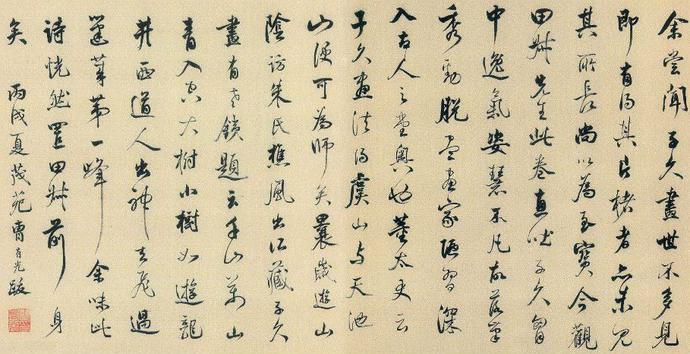 余嘗聞子久畫世不多見
即有得其片楮者亦未見
其所長尚以為至寶今觀
田叔先生此卷直吐子久胷
中逸氣姿慧不凡故落筆
秀勁脫盡畫家陋習深
入古人之堂奧也董太史云
子久畫法得虞山与天池
山便可為師矣曩歲遊山
陰訪朱氏樵風出所藏子久
畫有老鐵題云千山萬山
青入雲大樹小樹如遊龍
井西道人出神去飛過
蓬萊第一峰余味此
詩恍然置田叔前身
矣 丙戌夏茂苑曹 光跋